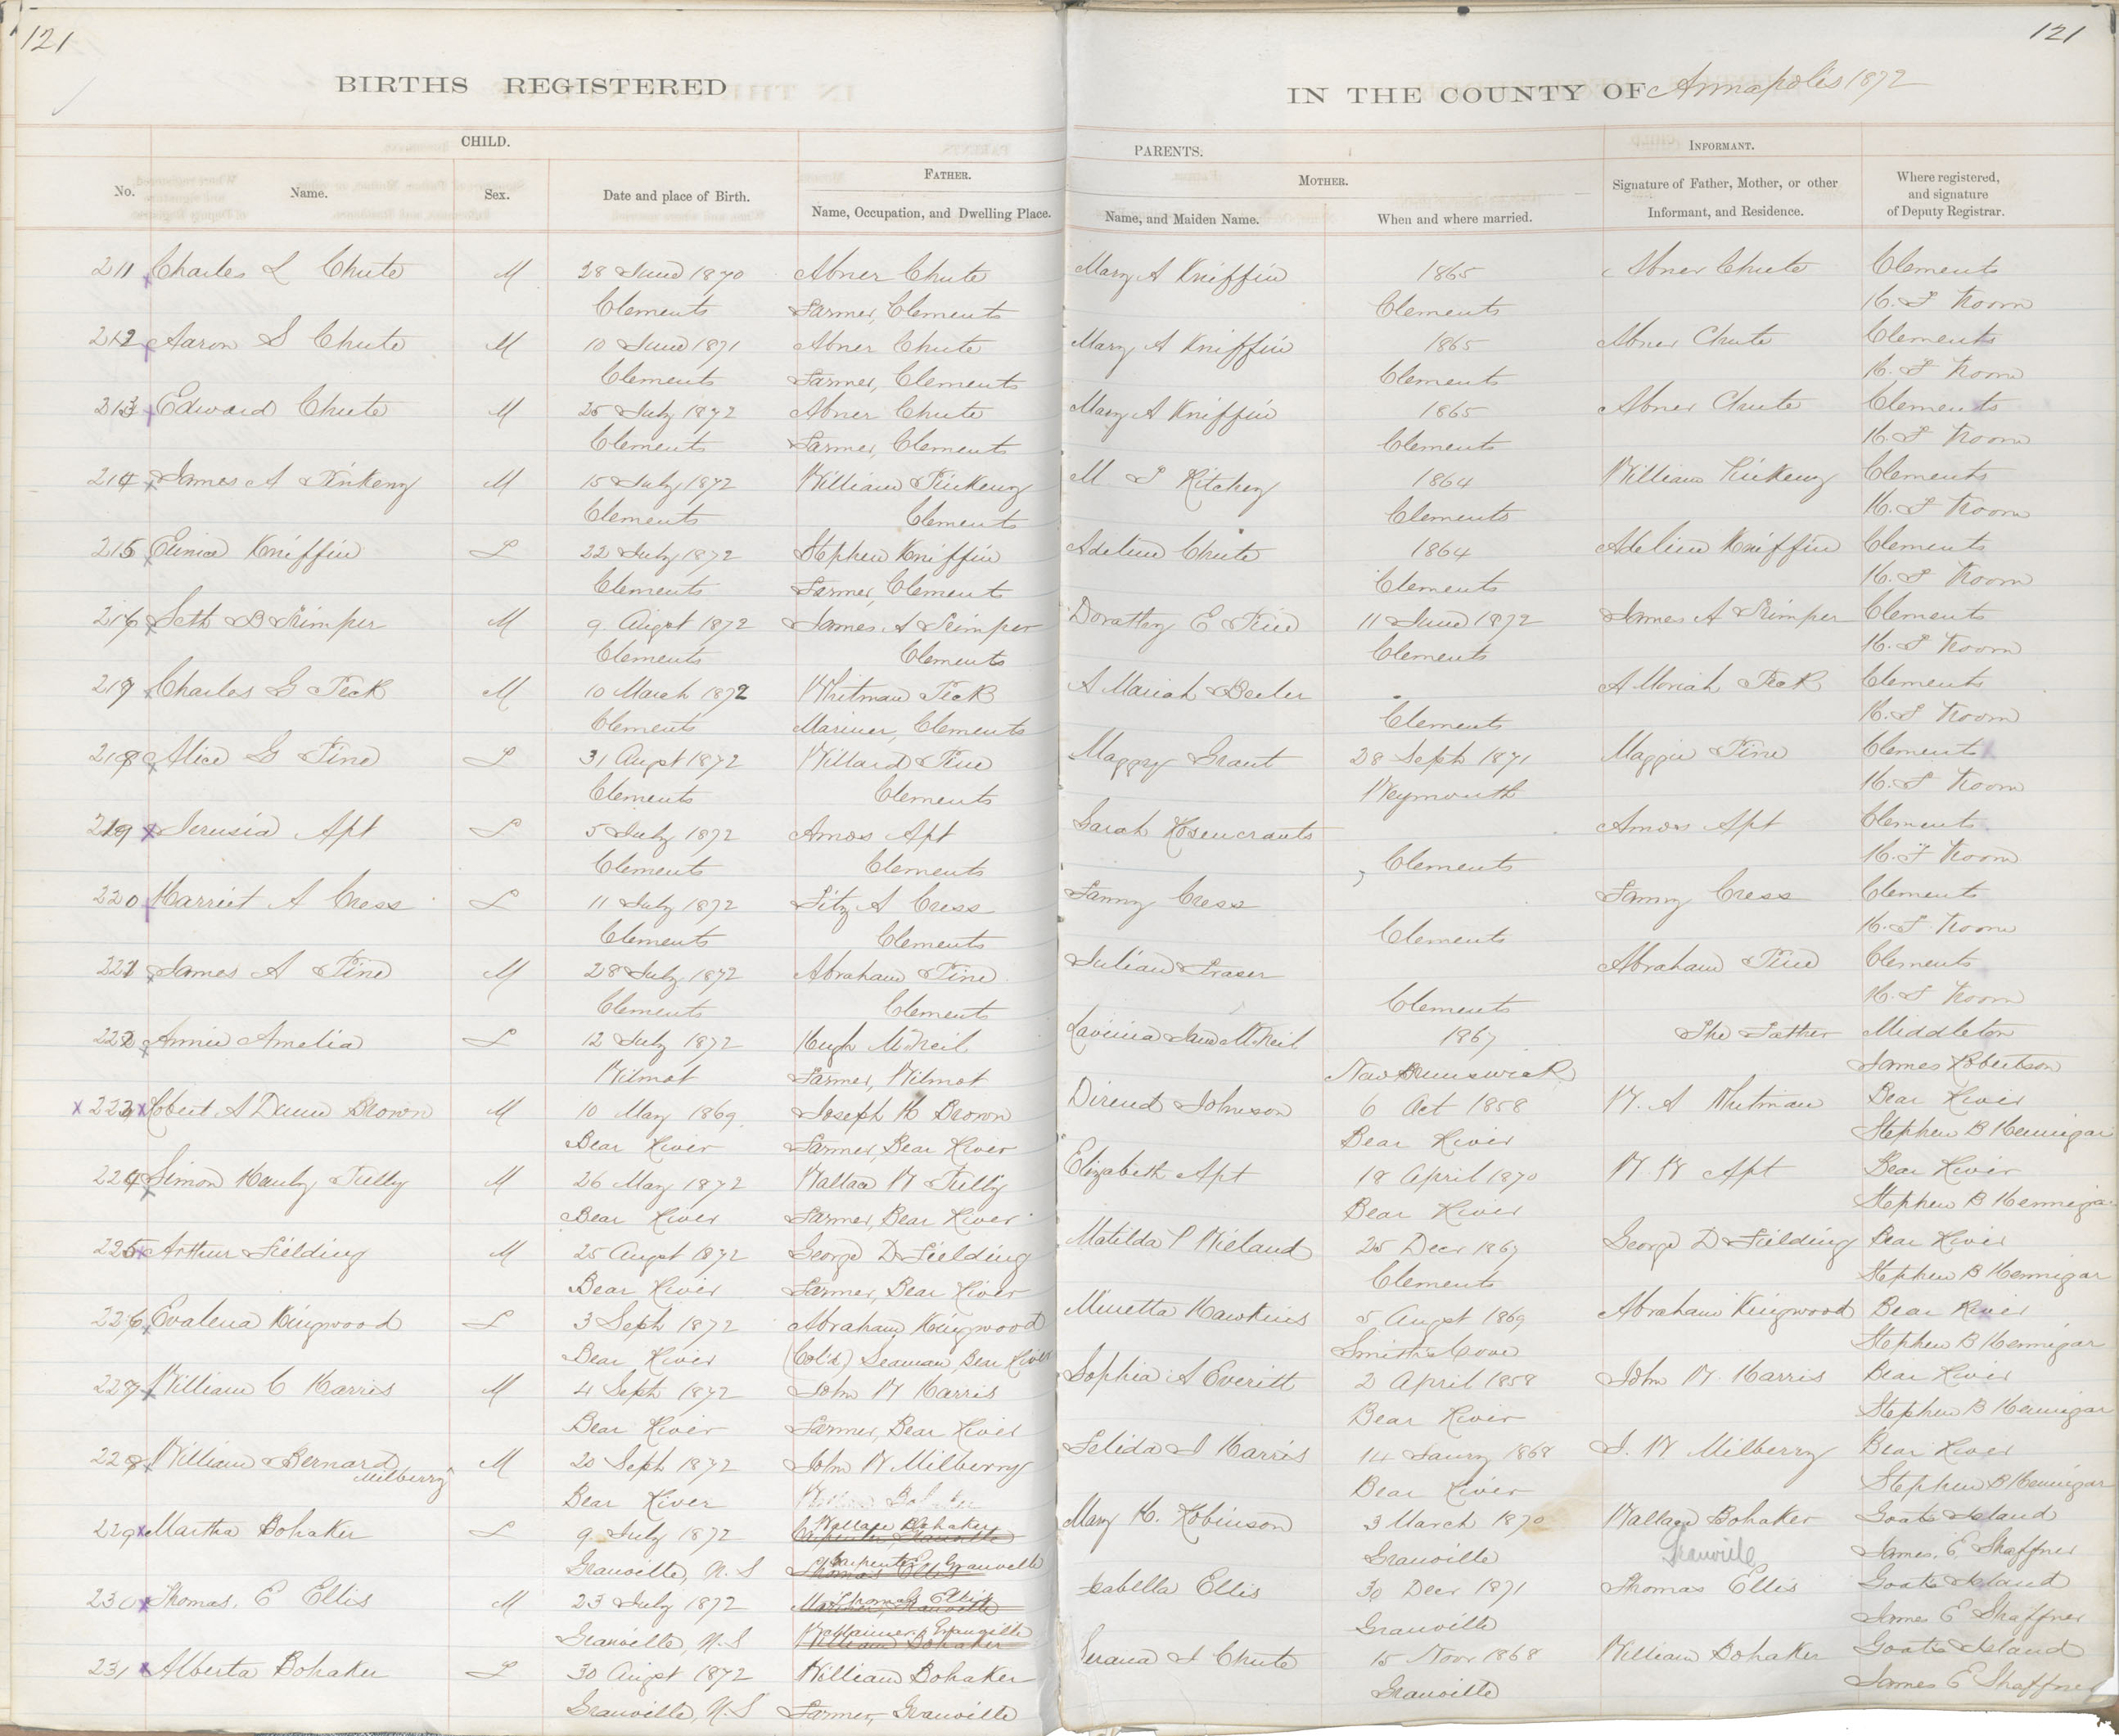 121
121
BIRTHS REGISTERED
IN THE COUNTY OF Annapolis 1872
CHILD.
PARENTS.
INFORMANT.
No.
Name.
Sex.
Date and place of Birth.
FATHER.
Name, Occupation, and Dwelling Place.
MOTHER.
Name, and Maiden Name.
When and where married.
Signature of Father, Mother, or other
Informant, and Residence.
Where registered,
and signature
of Deputy Registrar.
211 Charles L Chute M 28 June 1870 Abner Chute Mary A Kniffin 1865 Abner Chute Clements
Clements Farmer, Clements Clements
212 Aaron S Chute M 10 June 1871 Abner Chute Mary A Kniffin 1865 Abner Chute Clements
Clements Farmer, Clements Clements
213 Edward Chute M 25 July 1872 Abner Chute Mary A Kniffin 1865 Abner Chute Clements
Clements Farmer, Clements Clements
214 James A Pinkeny M 15 July 1872 William Pinkeny M Ritchey 1864 William Pinkeny Clements
Clements Clements Clements
215 Kniffin F 22 July 1872 Stephen Kniffin Adeline Chute 1864 Adeline Kniffin Clements
Clements Farmer, Clements Clements
216 Seth B Trimper M 9 Augst 1872 James A Trimper E Pine 11 June 1872 James A Trimper Clements
Clements Clements Clements
217 Charles G Peck M 10 March 1872 Whitman Peck A Mariah A Moriah Peck Clements
Clements Mariner, Clements Clements
218 Alice G Pine F 31 Augst 1872 Willard Pine Grant 28 Sept 1871 Maggie Pine Clements
Clements Clements Weymouth
219 Jerusia Apt F 5 July 1872 Amos Apt Sarah Rosencrants Amos Apt Clements
Clements Clements Clements
220 Harriet A Cress F 11 July 1872 Fitz A Cress Fanny Cress Fanny Cress Clements
Clements Clements Clements
221 James A Pine M 28 July 1872 Abraham Pine Julian Fraser Abraham Pine Clements
Clements Clements Clements
222 Annie Amelia F 12 July 1872 Hugh McNeil Lavinia Jane McNeil 1867 The Father Middleton
Wilmot Farmer, Wilmot New Brunswick James Robertson
223 Robert A Brown M 10 May 1869 Joseph H Brown Johnson 6 Oct 1858 W. A Whitman Bear River
Bear River Farmer, Bear River Bear River Stephen B Hennigar
224 Simon Manly Tully M 26 May 1872 Wallace W Tully Elizabeth Apt 18 April 1870 W. W Apt Bear River
Bear River Farmer, Bear River Bear River Stephen B Hennigar
225 Arthur Fielding M 25 Augst 1872 George D Fielding Matilda P 25 Decr 1867 George D Fielding Bear River
Bear River Farmer, Bear River Clements Stephen B Hennigar
226 Evalena Kingwood F 3 Sept 1872 Abraham Kingwood Minetta Hawkins 5 Augst 1869 Abraham Kingwood Bear River
Bear River (Cold) Seaman, Bear River Smiths Cove Stephen B Hennigar
227 William C Harris M 4 Sept 1872 John W Harris Sophia A Everitt 2 April 1858 John W. Harris Bear River
Bear River Farmer, Bear River Bear River Stephen B Hennigar
228 William Bernard M 20 Sept 1872 John W Milberry Harris 14 Jany 1868 J. W Milberry Bear River
Milberry
Bear River Bear River Stephen B Hennigar
229 Martha Bohaker F 9 July 1872 Wallace Bohaker Mary H. Robinson 3 March 1870 Wallace Bohaker Goats Island
Granville, N. S Carpenter Granville Granville Granville James. E Shaffner
230 Thomas. E Ellis M 23 July 1872 Thomas Ellis Isabella Ellis 30 Decr 1871 Thomas Ellis Goats Island
Granville, N. S Mariner, Granville Granville James E Shaffner
231 Alberta Bohaker F 30 Augst 1872 William Bohaker Chute 15 Novr 1868 William Bohaker Goats Island
Granville, N. S Farmer, Granville Granville James E Shaffner